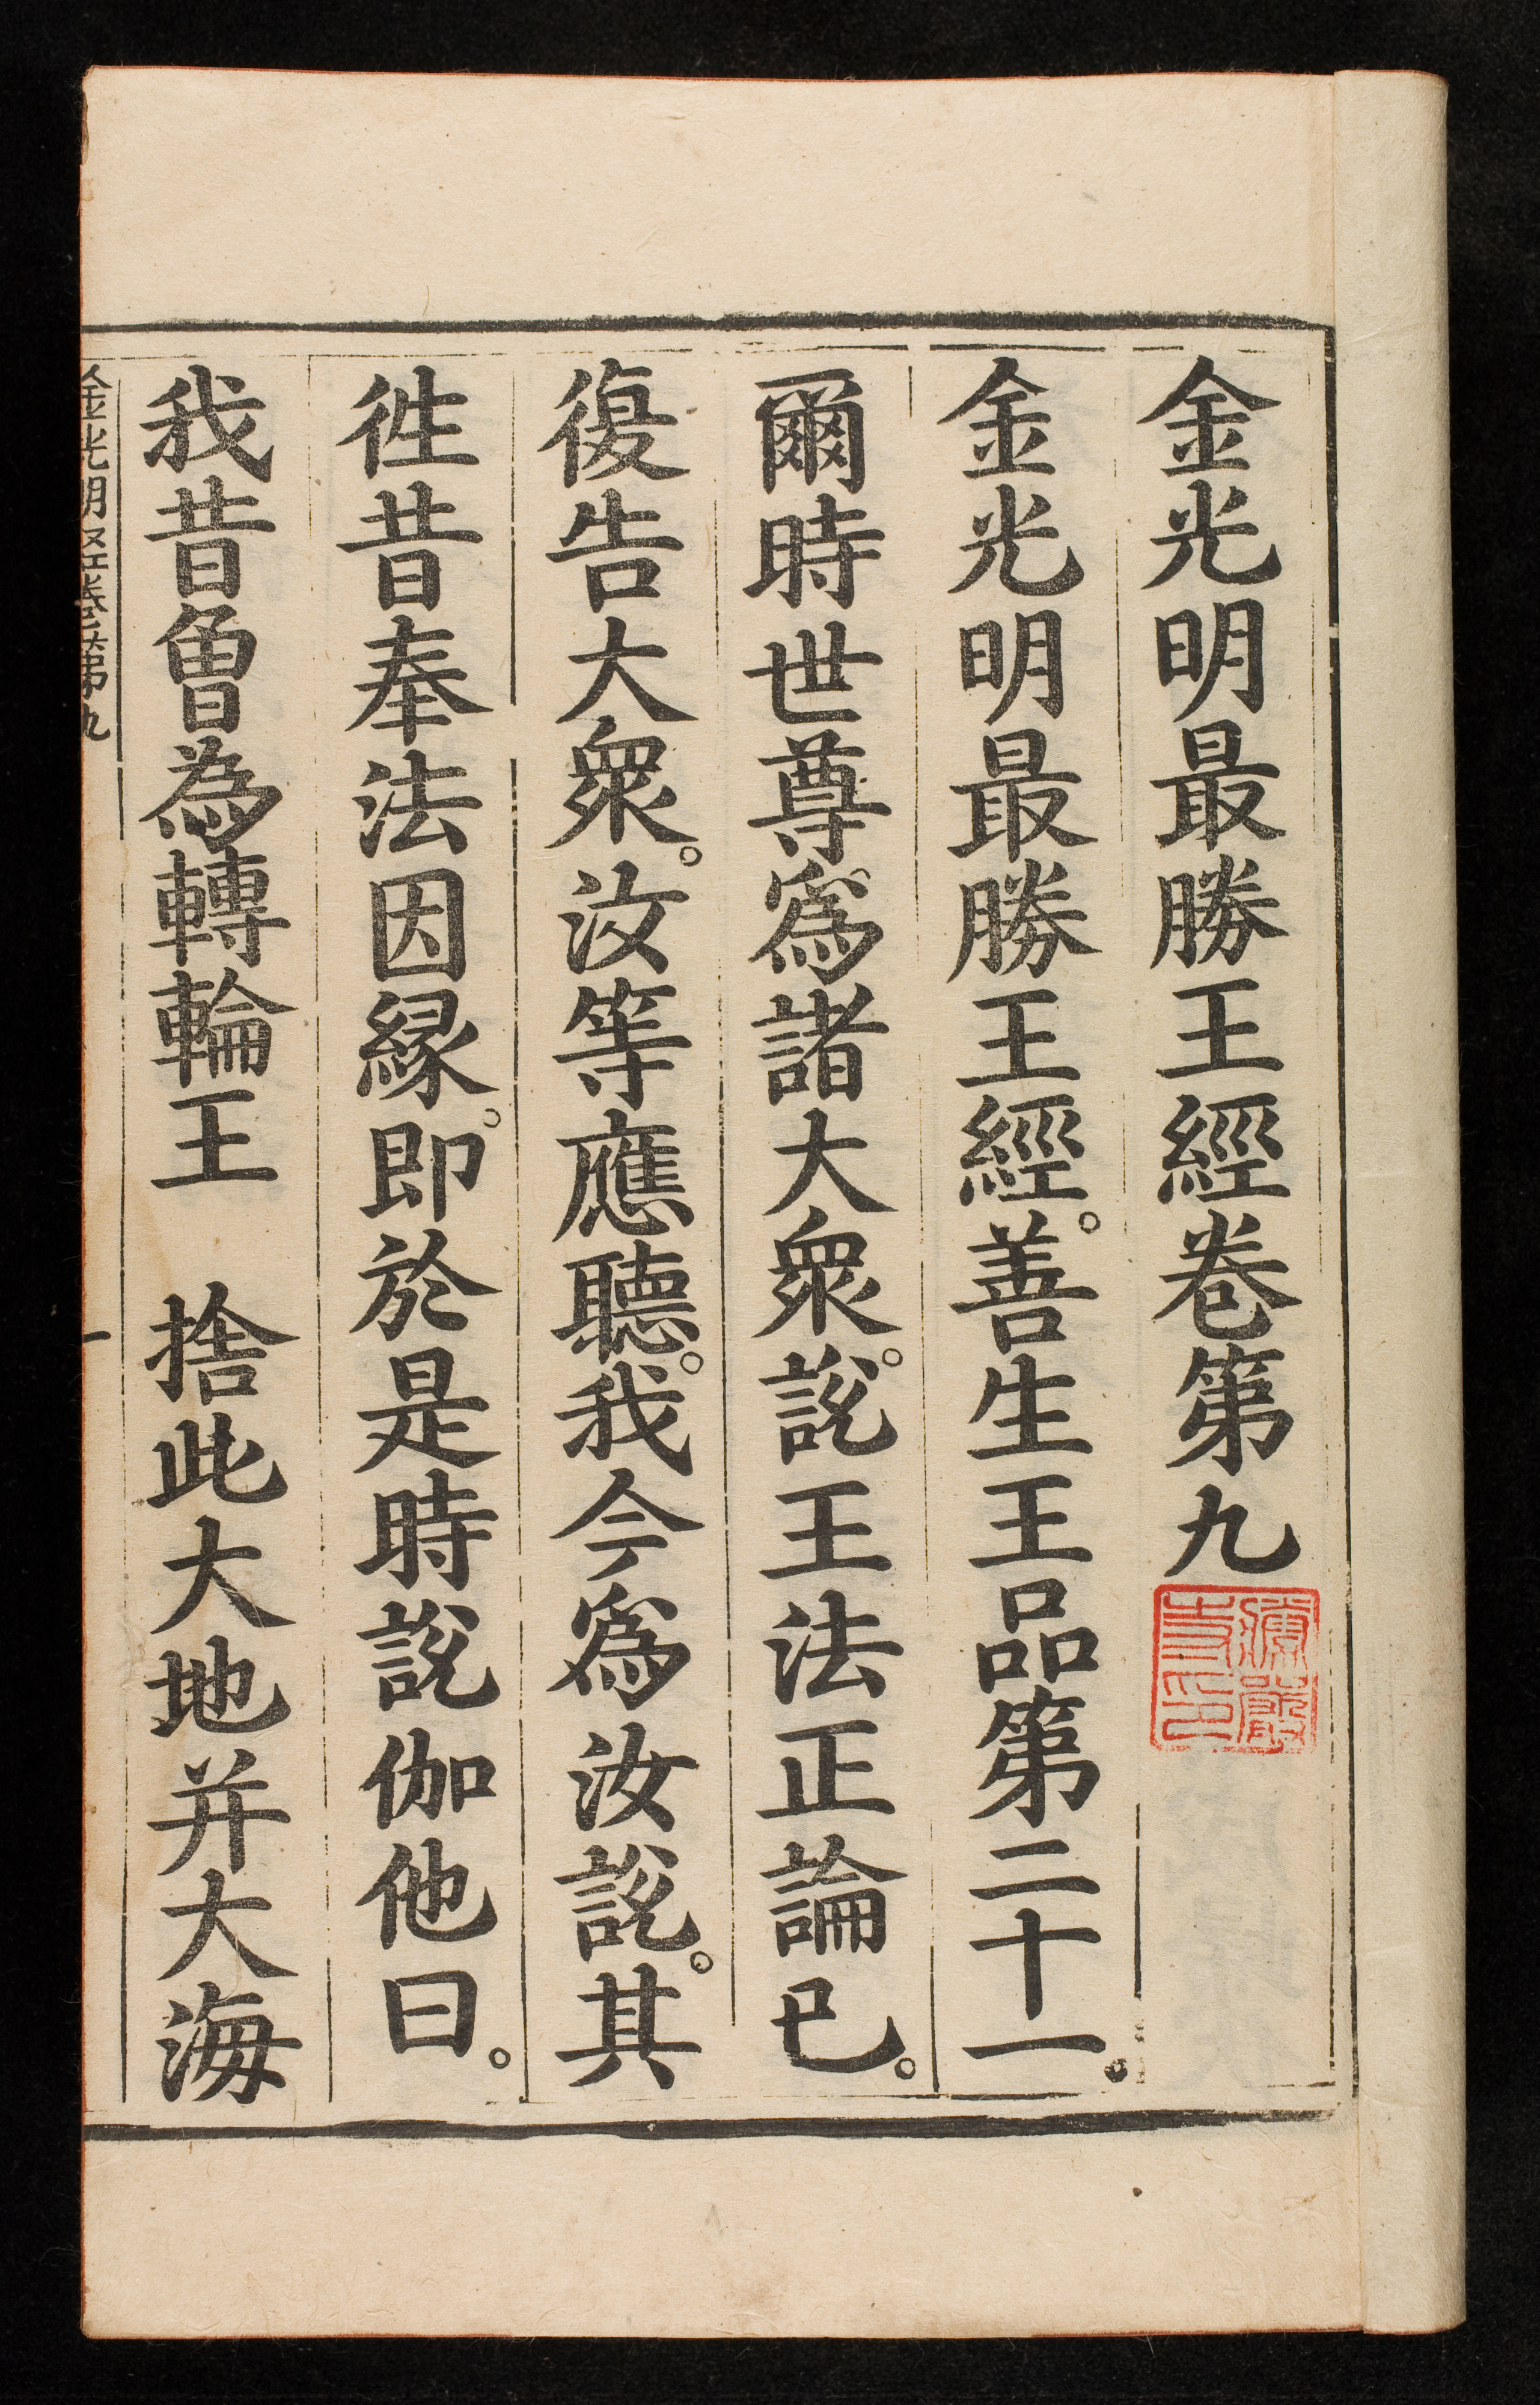 金光明最勝王經卷第九
金光明最勝王經。善生王品第二十一。
爾時世尊。爲諸大衆。說王法正論已。
復告大衆。汝等應聽。我今爲汝說。其
徃昔奉法因緣。即於是時說伽他曰。
我昔曾為轉輪王　捨此大地并大海
金光明经卷第九
一